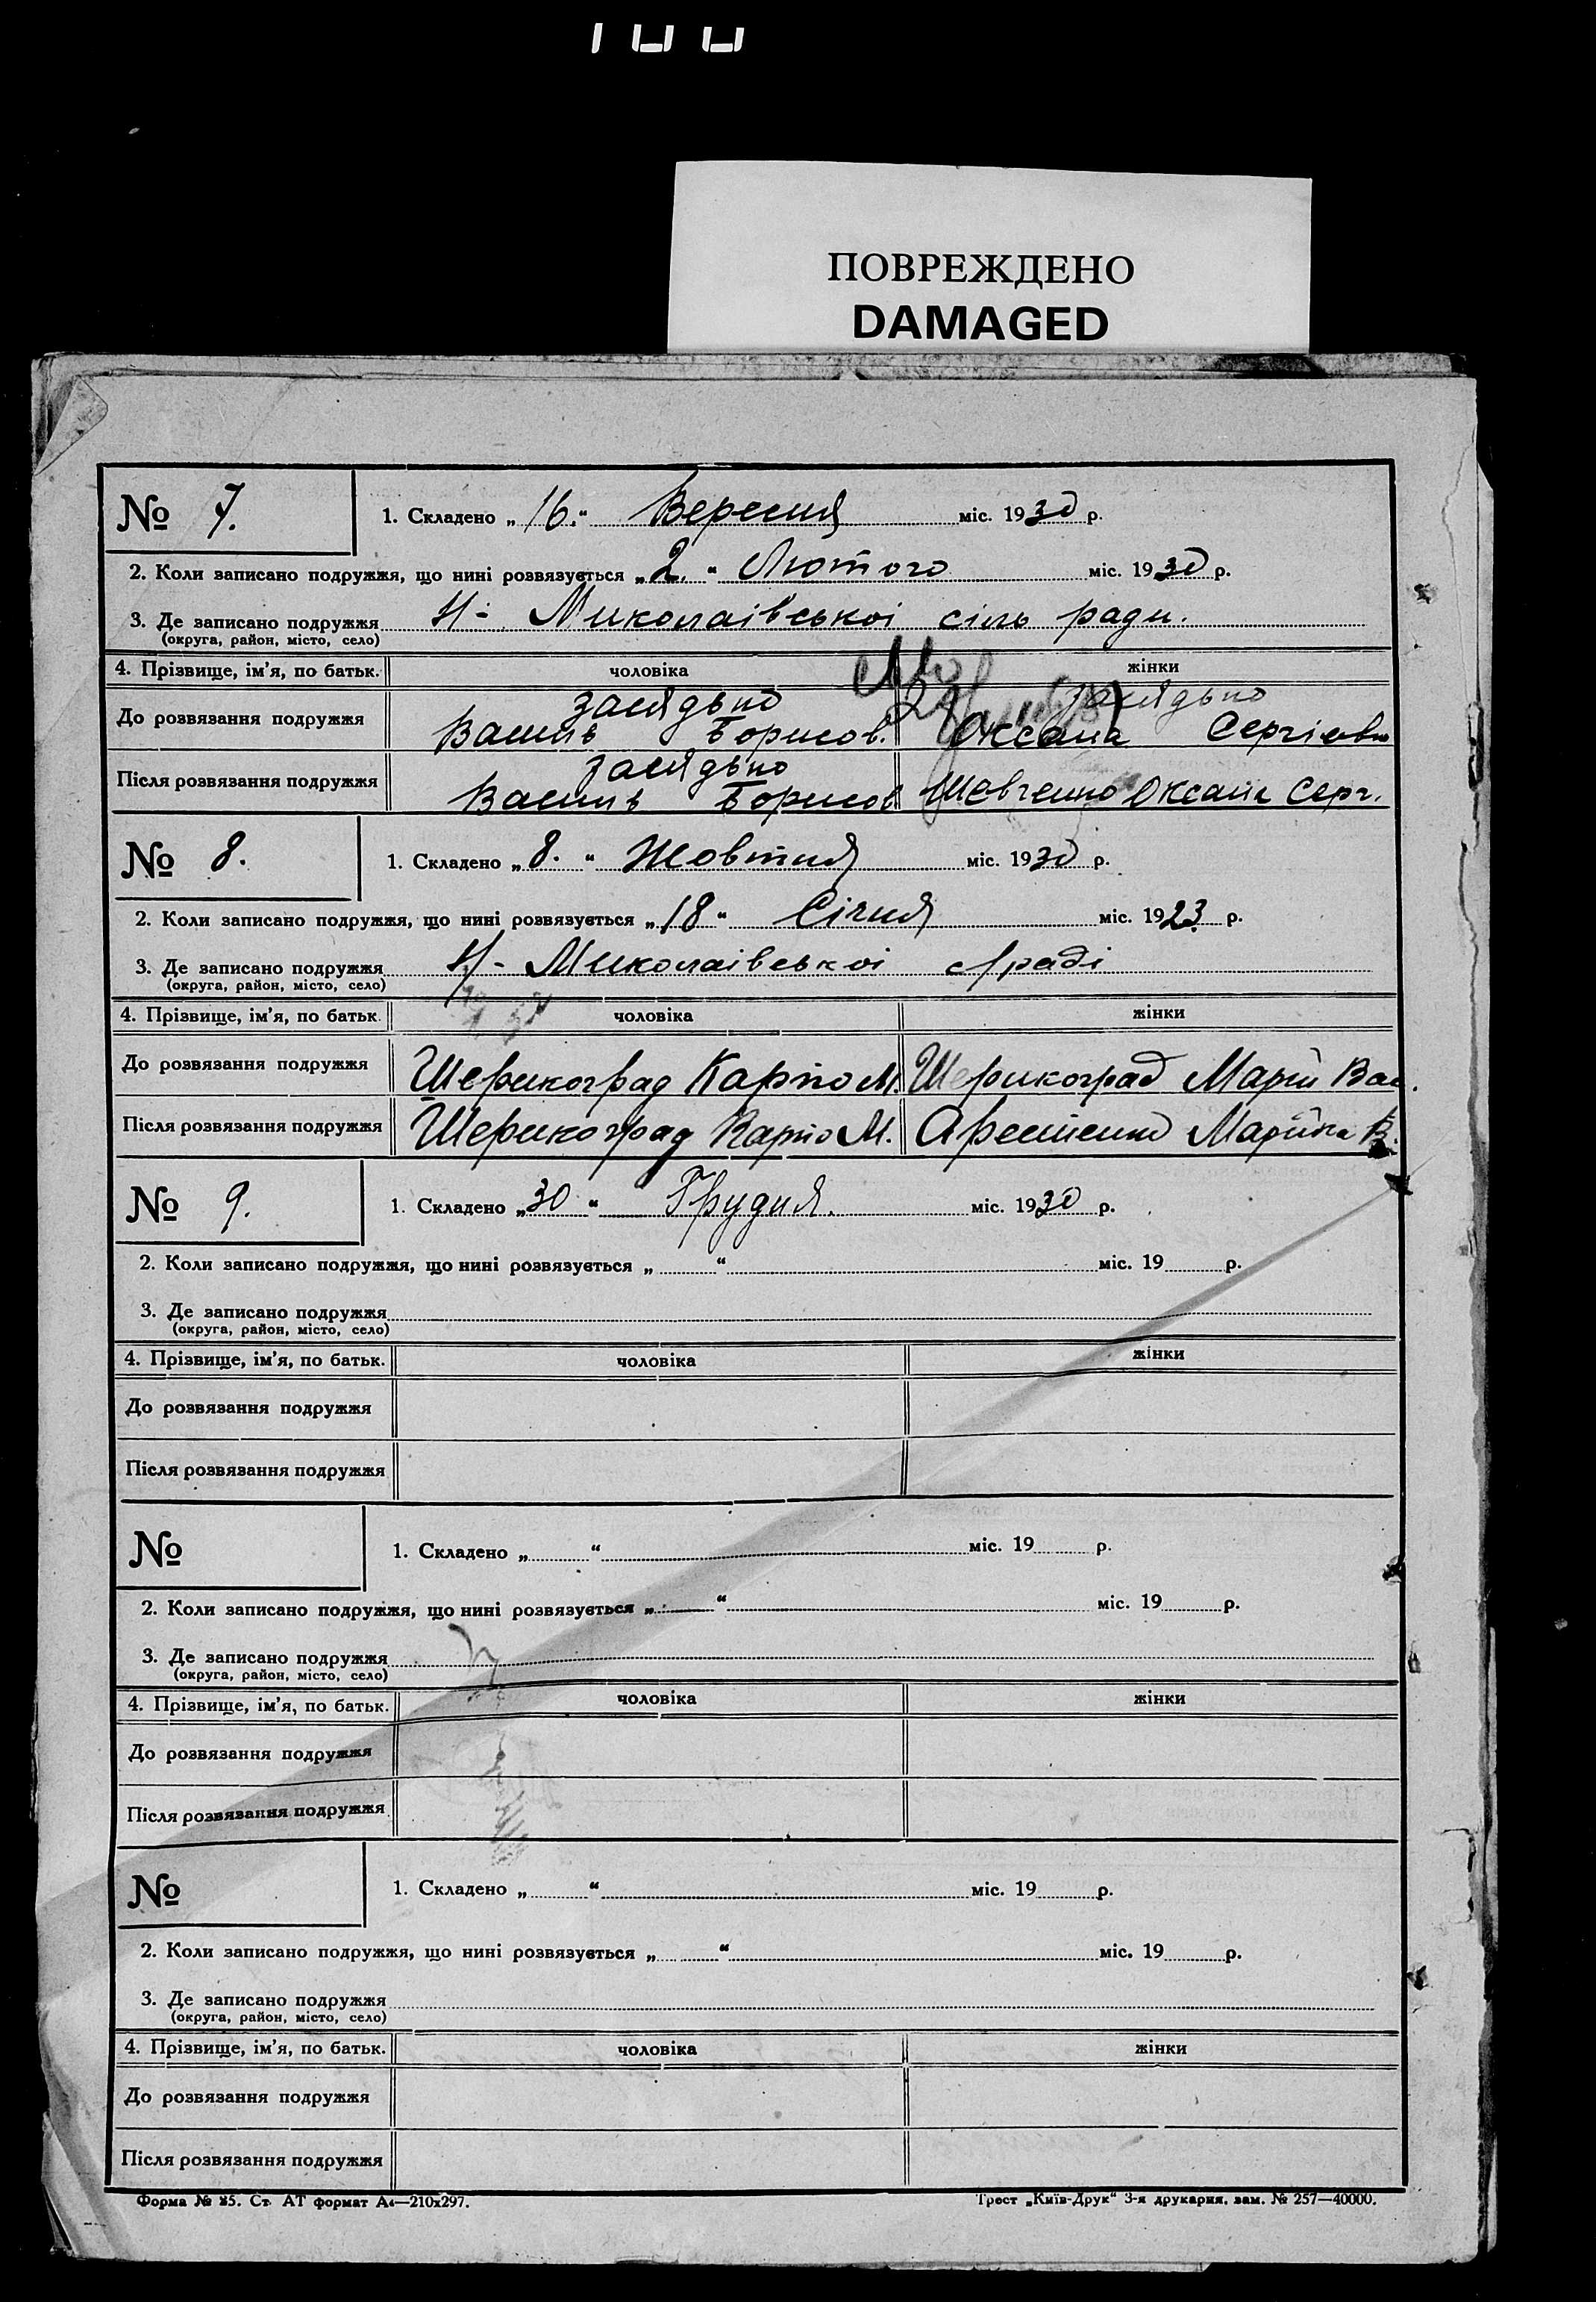 ПОВРЕЖДЕНО
DAMAGED
№ 7. 1. Складено „16.“ Вересня міс. 1930 р.
2. Коли записано подружжя, що нині розвязується „2.“ Лютого міс. 1930 р.
3. Де записано подружжя Н- Миколаівськоі сіль ради.
(округа, район, місто, село)
4. Прізвище, ім'я, по батьк. чоловіка жінки
засядько засядько
До розвязання подружжя Василь Борисов. Оксана Сергіевн
засядько
Після розвязання подружжя Василь Борисов Шевченко Оксана Серг.
№ 8. 1. Складено „8.“ Жовтня міс. 1930 р.
2. Коли записано подружжя, що нині розвязується „18“ Січня міс. 1923 р.
3. Де записано подружжя Н- Миколаівськоі с/раді
(округа, район, місто, село)
4. Прізвище, ім'я, по батьк. чоловіка жінки
До розвязання подружжя Шерикоград Карпо М. Шерикоград Марія Вас.
Після розвязання подружжя Шерикоград Карпо М. В.
№ 9. 1. Складено „30“ Грудня. міс. 1930 р.
2. Коли записано подружжя, що нині розвязується „ “ міс. 19 р.
3. Де записано подружжя
(округа, район, місто, село)
4. Прізвище, ім'я, по батьк. чоловіка жінки
До розвязання подружжя
Після розвязання подружжя
№ 1. Складено „ “ міс. 19 р.
2. Коли записано подружжя, що нині розвязується „ “ міс. 19 р.
3. Де записано подружжя
(округа, район, місто, село)
4. Прізвище, ім'я, по батьк. чоловіка жінки
До розвязання подружжя
Після розвязання подружжя
№ 1. Складено „ “ міс. 19 р.
2. Коли записано подружжя, що нині розвязується „ “ міс. 19 р.
3. Де записано подружжя
(округа, район, місто, село)
4. Прізвище, ім'я, по батьк. чоловіка жінки
До розвязання подружжя
Після розвязання подружжя
Форма № 25. Ст. АТ формат А4—210х297. Трест „Київ-Друк“ 3-я друкарня, зам. № 257—40000.